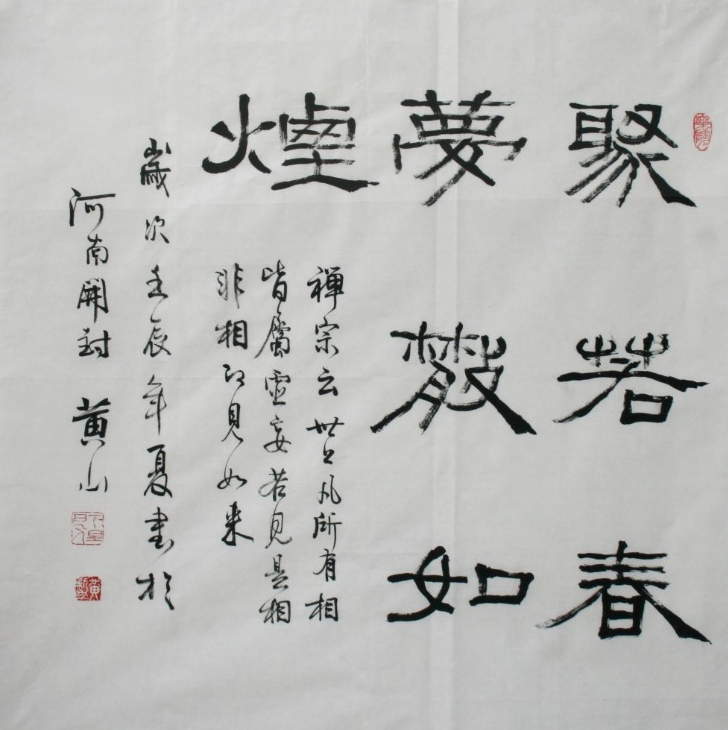 聚若春
夢散如
煙
禅宗云世上凡所有相
皆属虚妄若見是相
非相即見如来
歲次壬辰年夏書於
河南開封 黄山